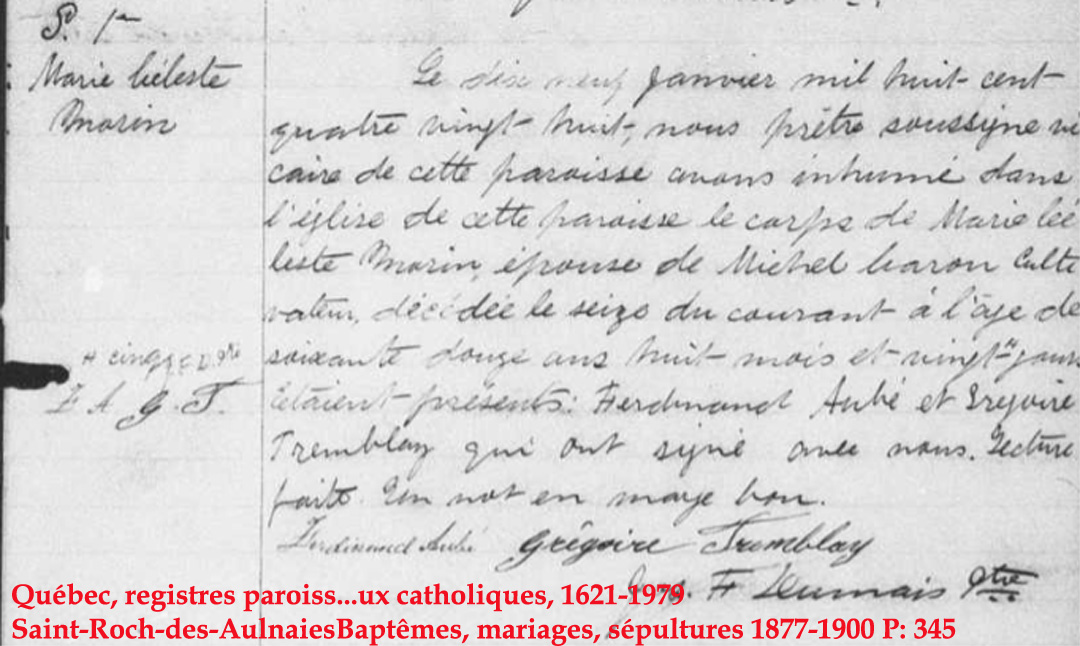 S. 1re
Marie Céleste
Morin
Le dix neuf Janvier mil huit cent
quatre vingt huit, nous prêtre soussigné vi
caire de cette paroisse avons inhumé dans
l'église de cette paroisse le corps de Marie Cé
leste Morin, épouse de Michel Caron Culti
vateur, décédée le seize du courant à l'âge de
soixante douze ans huit mois et vingt # jours
Etaient présents: Ferdinand Aubé et Grégoire
Tremblay qui ont signé avec nous. Lecture
faite. Un mot en marge bon.
# cinq
F. A. G. T.
Ferdinand Aubé Grégoire Tremblay
F Dumais Ptre
Québec, registres paroiss...ux catholiques, 1621-1979
Saint-Roch-des-AulnaiesBaptêmes, mariages, sépultures 1877-1900 P: 345